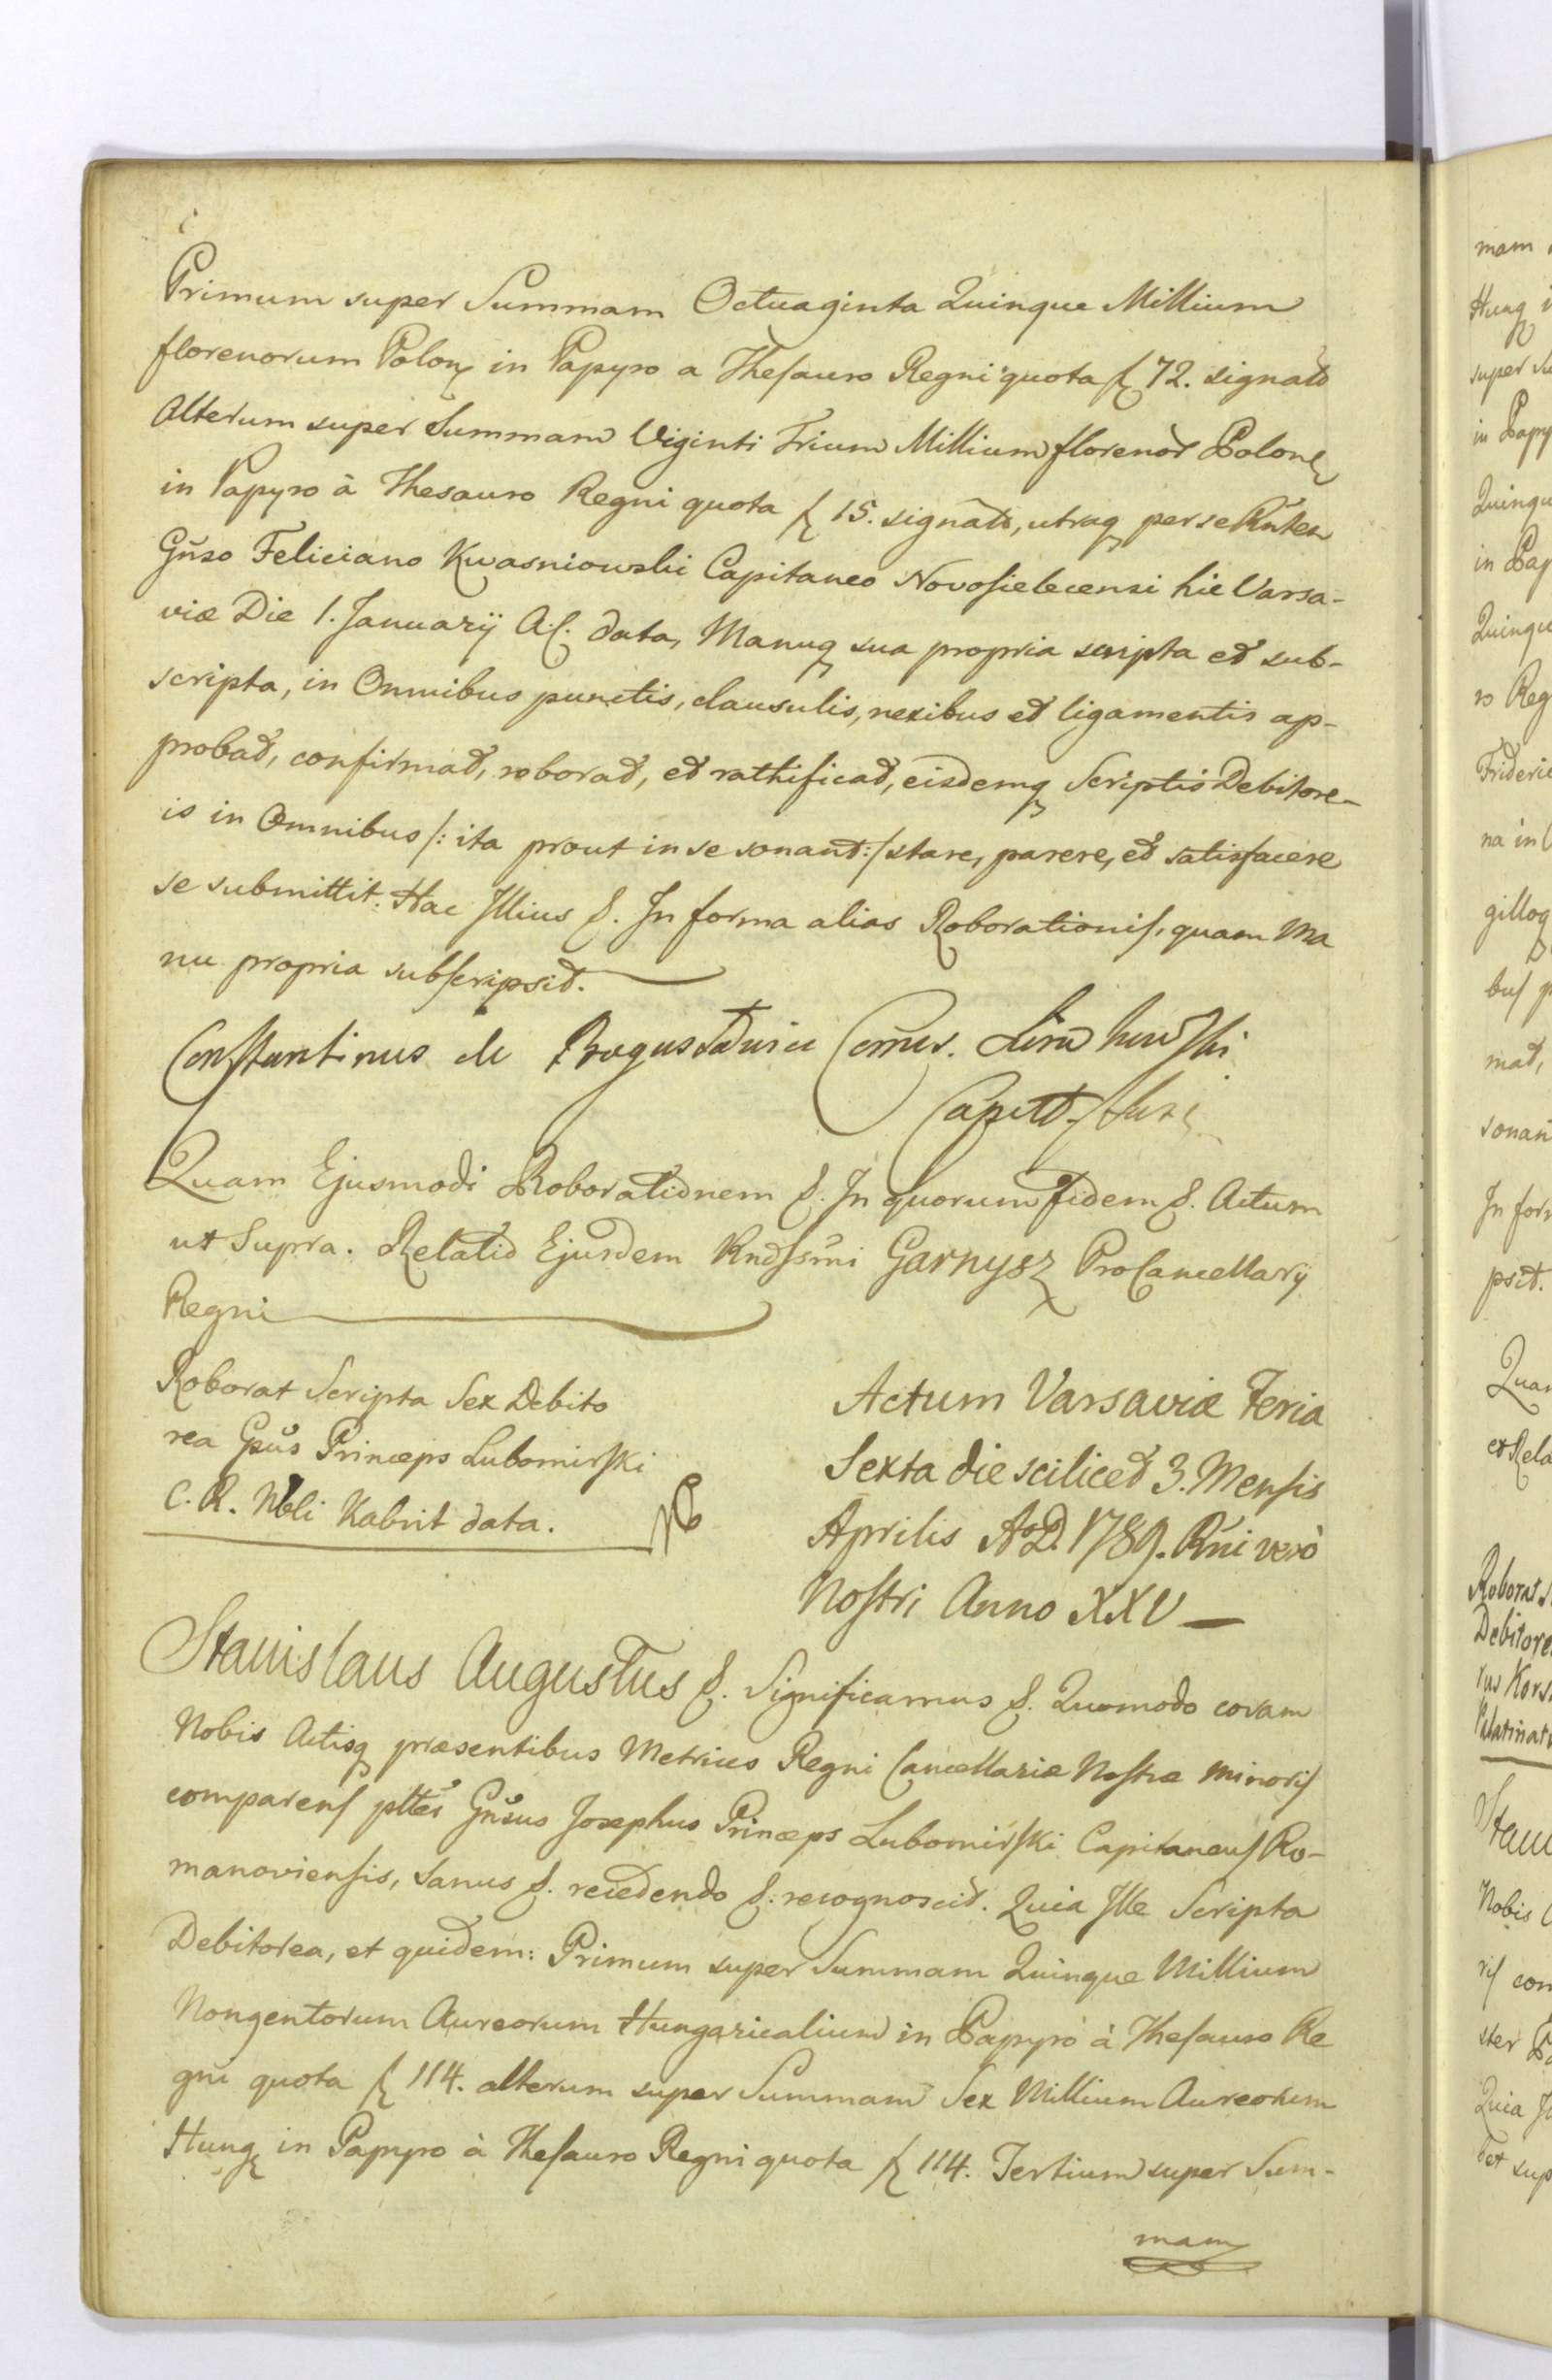 Primum super Summam Octuaginta Quinque Millium
florenorum Polon in Papyro a Thesauro Regni quota f 72. signato
Alterum super Summam Viginti Trium Millium florenor Polon
in Papyro à Thesauro Regni quota f 15. signato, utraq per se Rntem
Gnso Feliciano Kwasniowski Capitaneo Novosielecensi hic Varsa-
viæ Die 1. Januarij A. C. data, Manuq sua propria scripta et sub-
scripta, in Omnibus punctis, clausulis, nexibus et ligamentis ap-
probat, confirmat, roborat, et rathificat, eisdemq Scriptis Debitore-
is in Omnibus /: ita prout in se sonant :/ stare, parere, et satisfacere
se submittit. Hac Illius &. In forma alias Roborationis, quam Ma
nu propria subscripsit.
Constantinus de Bogusławice Comes
Capitt
Quam Ejusmodi Roborationem &. In quorum fidem &. Actum
ut Supra. Relatio Ejusdem Rndssmi Garnysz ProCancellarij
Regni
Roborat Scripta Sex Debito
rea Gnsus Princeps Lubomirski
C. R. Nbli Kabrit data.
Actum Varsaviæ Feria
Sexta die scilicet 3. Mensis
Aprilis A. D. 1789. Rni verò
Nostri Anno XXV
Stanislaus Augustus &. Significamus &. Quomodo coram
Nobis Actisq præsentibus Metrices Regni Cancellariæ Nostræ Minoris
comparens pltes Gnsus Josephus Princeps Lubomirski Capitaneus Ro-
manoviensis, sanus &. recedendo &: recognoscit. Quia Ille Scripta
Debitorea, et quidem: Primum super Summam Quinque Millium
Nongentorum Aureorum Hungaricalium in Papyro à Thesauro Re
gni quota f 114. alterum super Summam Sex Millium Aureorum
Hung in Papyro à Thesauro Regni quota f 114. Tertium super Sum-
mam